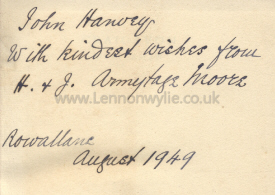 John Hanvey
With kindest wishes from
H. & J. Armytage Moore
www.Lennonwylie.co.uk
Rowallane
August 1949